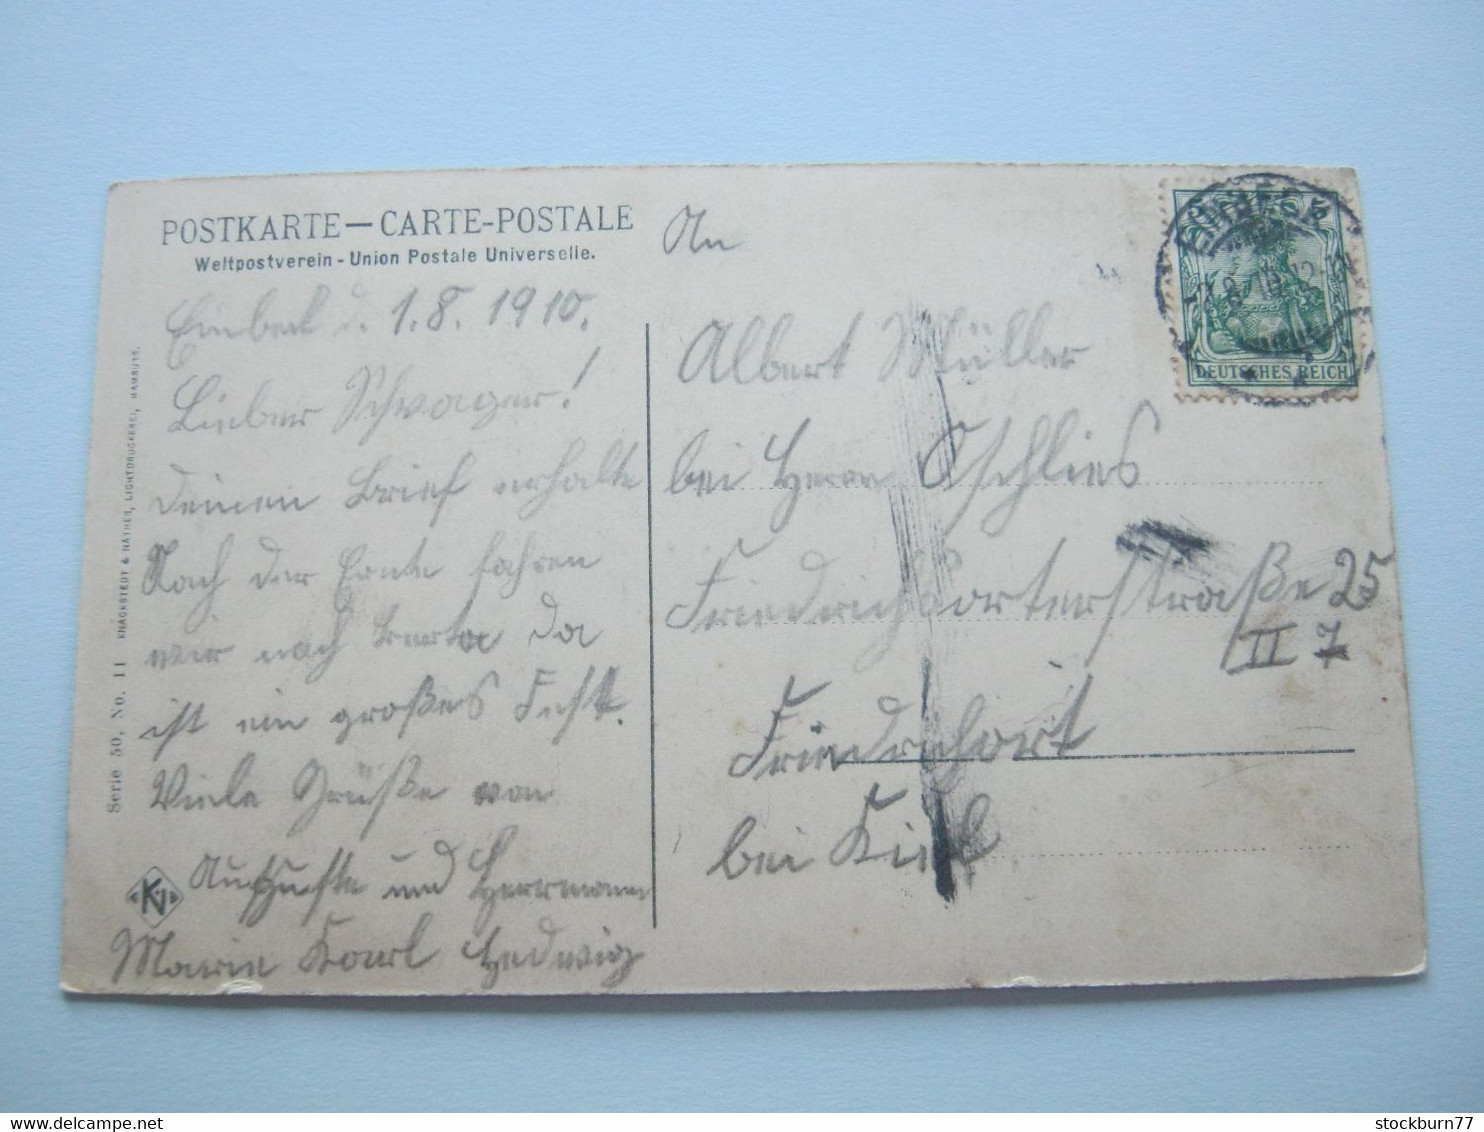 POSTKARTE — CARTE-POSTALE
Weltpostverein - Union Postale Universelle.
Einbeck d. 1.8. 1910.
Lieber Schwager!
Deinen Brief erhalte
Nach der Ernte fahren
wir nach Berta Da
ist ein großes Fest.
Viele Grüße von
und Herrmann
Marie Karl Hedwig
An
Albert Müller
bei Herrn
Friedrichsorterstraße 25
II 7
Friedrichsort
bei Kiel
EINBECK
DEUTSCHES REICH
Serie 50, No. 11 KNACKSTEDT & NÄTHER, LICHTDRUCKEREI, HAMBURG.
stockburn77